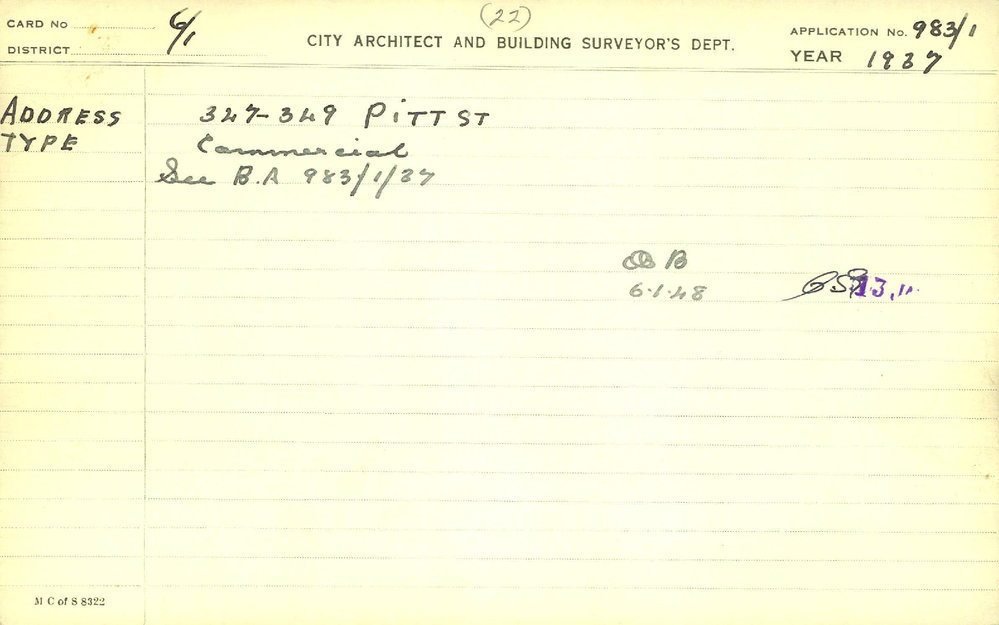 (22)
CARD No 6/1
CITY ARCHITECT AND BUILDING SURVEYOR'S DEPT.
APPLICATION No. 983/1
DISTRICT
YEAR 1937
ADDRESS 347-349 PITT ST
TYPE Commercial
See B.A 983/1/37
6.1.48
M C of S 8322